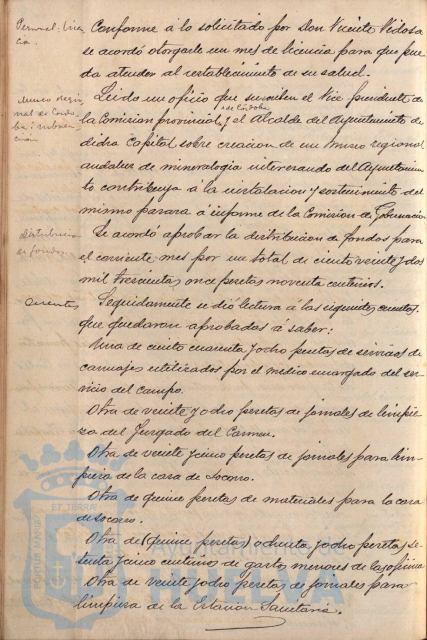 Personal: licen
cia.
Conforme á lo solicitado por Don Vicente Vidosa
se acordó otorgarle un mes de licencia para que pue
da atender al restablecimiento de su salud.
Museo regio
nal de Cordo
ba: subven
cion
Leido un oficio que suscriben el Vice presidente de
la Comision provincial ^de Córdoba y el Alcalde del Ayuntamiento de
dicha Capital sobre creacion de un museo regional
andaluz de mineralogia interesando del Ayuntamien
to contribuya á la instalacion y sostenimiento del
mismo pasara á informe de la Comision de Gobernacion
Distribucion
de fondos
Se acordó aprobar la distribucion de fondos para
el corriente mes por un total de ciento veinte y dos
mil trescientas once pesetas noventa centimos.
Cuentas
Seguidamente se dió lectura á las siguientes cuentas,
que quedaron aprobadas á saber:
Una de ciento cuarenta y ocho pesetas de servicios de
carruajes utilizados por el medico encargado del ser
vicio del campo.
Otra de veinte y ocho pesetas de jornales de limpie
za del Juzgado del Carmen.
Otra de veinte y cinco pesetas de jornales para lim
pieza de la casa de Socorro.
Otra de quince pesetas de materiales para la casa
de socorro.
Otra de (quince pesetas) ochenta y ocho pesetas se
tenta y cinco centimos de gastos menores de las oficinas
Otra de veinte y ocho pesetas de jornales para
limpieza de la Estacion Sanitaria.
ET TERRAE
PORTUS MARIS
Ayuntamiento
HUELVA